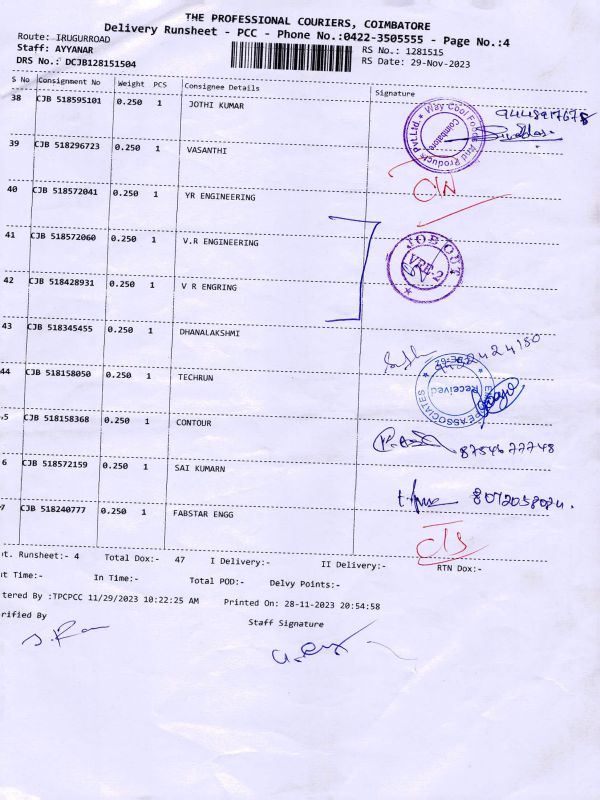 THE PROFESSIONAL COURIERS, COIMBATORE
Delivery Runsheet - PCC - Phone No.:0422-3505555 - Page No.:4
Route: IRUGURROAD
RS No.: 1281515
Staff: AYYANAR
RS Date: 29-Nov-2023
DRS No.: DCJB128151504
S No Consignment No Weight PCS Consignee Details Signature
38 CJB 518595101 0.250 1 JOTHI KUMAR
Way Cool Foods And Products Pvt.Ltd. Coimbatore
39 CJB 518296723 0.250 1 VASANTHI
40 CJB 518572041 0.250 1 YR ENGINEERING
41 CJB 518572060 0.250 1 V.R ENGINEERING
JOB OUT
VRE-2
42 CJB 518428931 0.250 1 V R ENGRING
43 CJB 518345455 0.250 1 DHANALAKSHMI
44 CJB 518158050 0.250 1 TECHRUN
Received
ASSOCIATES
5 CJB 518158368 0.250 1 CONTOUR
8754677748
6 CJB 518572159 0.250 1 SAI KUMARN
8072058024.
7 CJB 518240777 0.250 1 FABSTAR ENGG
t. Runsheet:- 4 Total Dox:- 47 I Delivery:- II Delivery:- RTN Dox:-
t Time:- In Time:- Total POD:- Delvy Points:-
tered By :TPCPCC 11/29/2023 10:22:25 AM Printed On: 28-11-2023 20:54:58
rified By Staff Signature